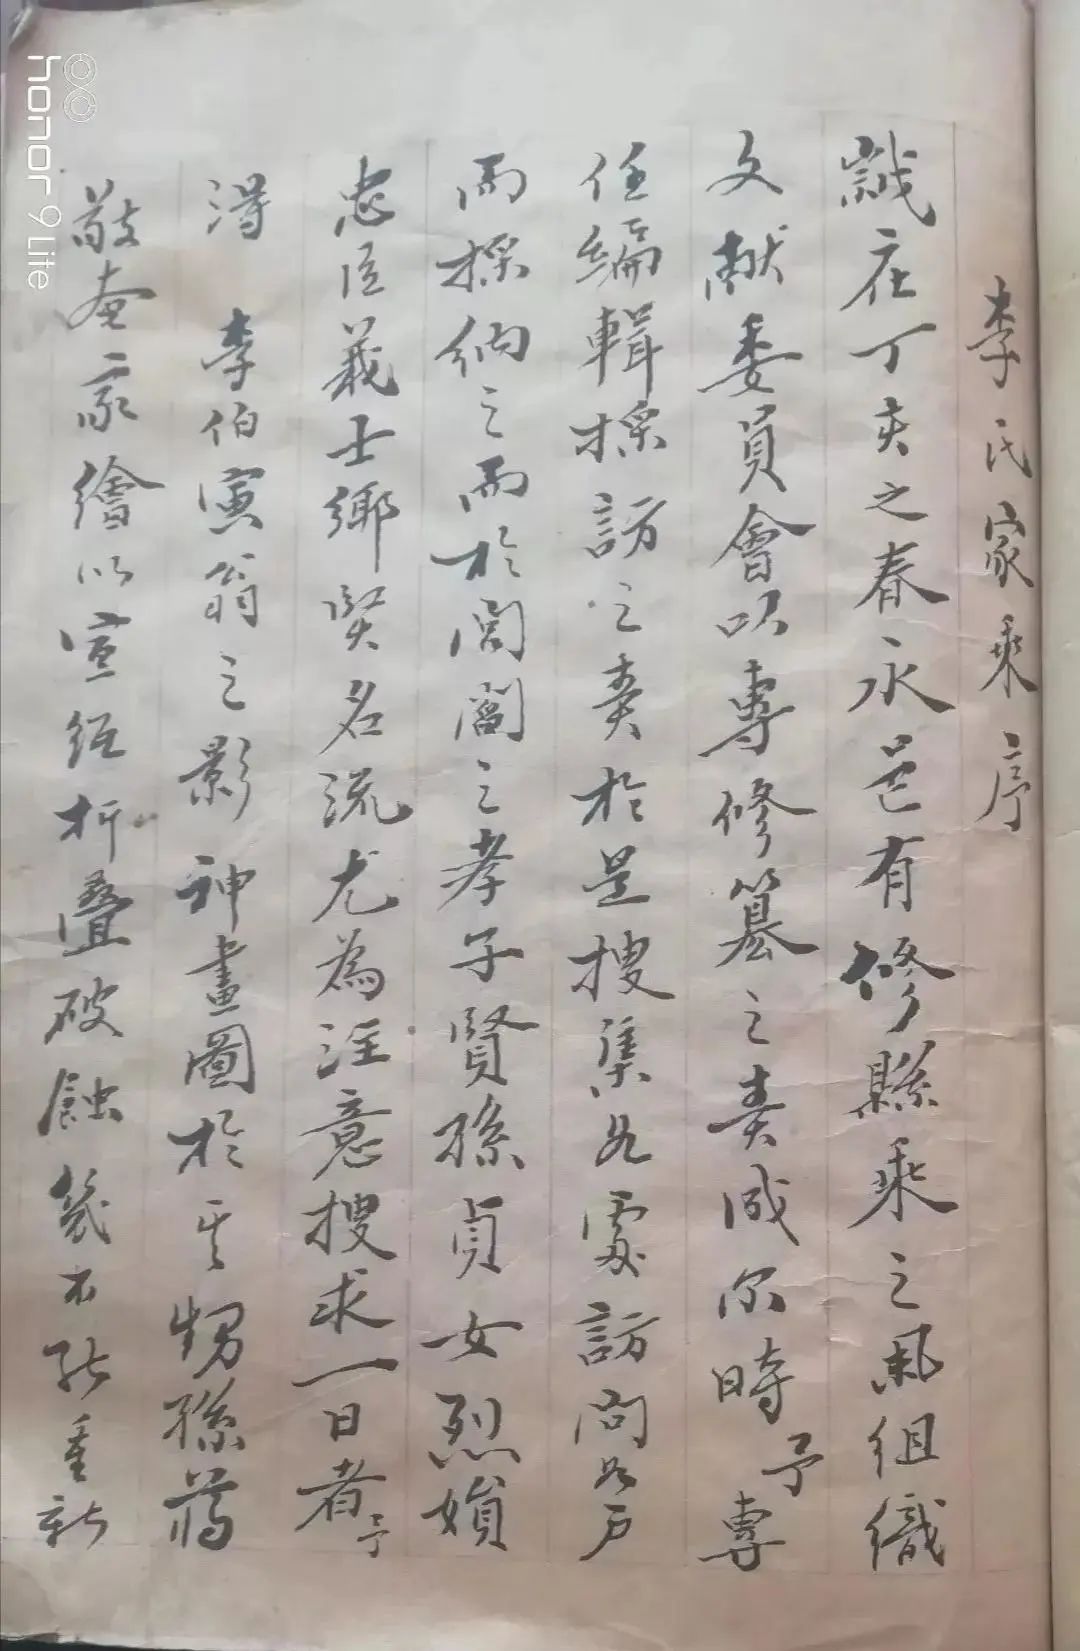 李氏家乘序
誠在丁亥之春永邑有修縣乘之風組織
文献委員會以專修纂之責成尔時予專
任編輯採訪之責於是搜集各處訪問各户
而採納之而於閭閻之孝子賢孫貞女烈媍
忠臣義士鄉賢名流尤為注意搜求一日者予
得 李伯寅翁之影神畫圖於其甥孫蔣
敬奄家繪以宣紙折叠破蝕幾不能重新
honor 9 Lite